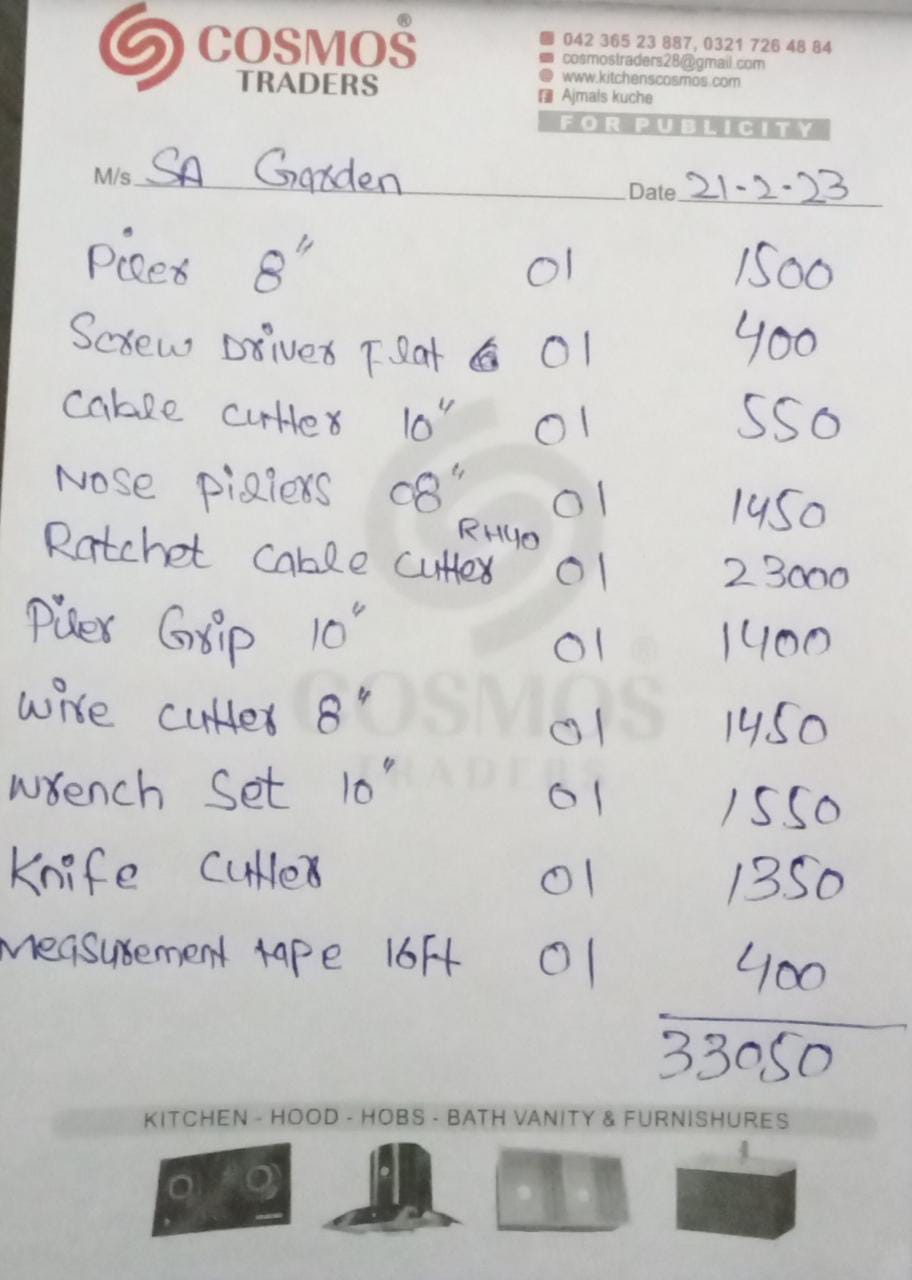 COSMOS ®
TRADERS
042 365 23 887, 0321 726 48 84
cosmostraders28@gmail.com
www.kitchenscosmos.com
Ajmals kuche
FOR PUBLICITY
M/s. SA Garden Date 21-2-23
Piler 8" 01 1500
Screw Driver Flat 6 01 400
Cable cutter 10" 01 550
Nose piliers 08" 01 1450
Ratchet Cable Cutter RH40 01 23000
Piler Grip 10" 01 1400
wire cutter 8" 01 1450
wrench Set 10" 01 1550
Knife Cutter 01 1350
Measurement tape 16Ft 01 400
33050
COSMOS ®
TRADERS
KITCHEN - HOOD - HOBS - BATH VANITY & FURNISHURES